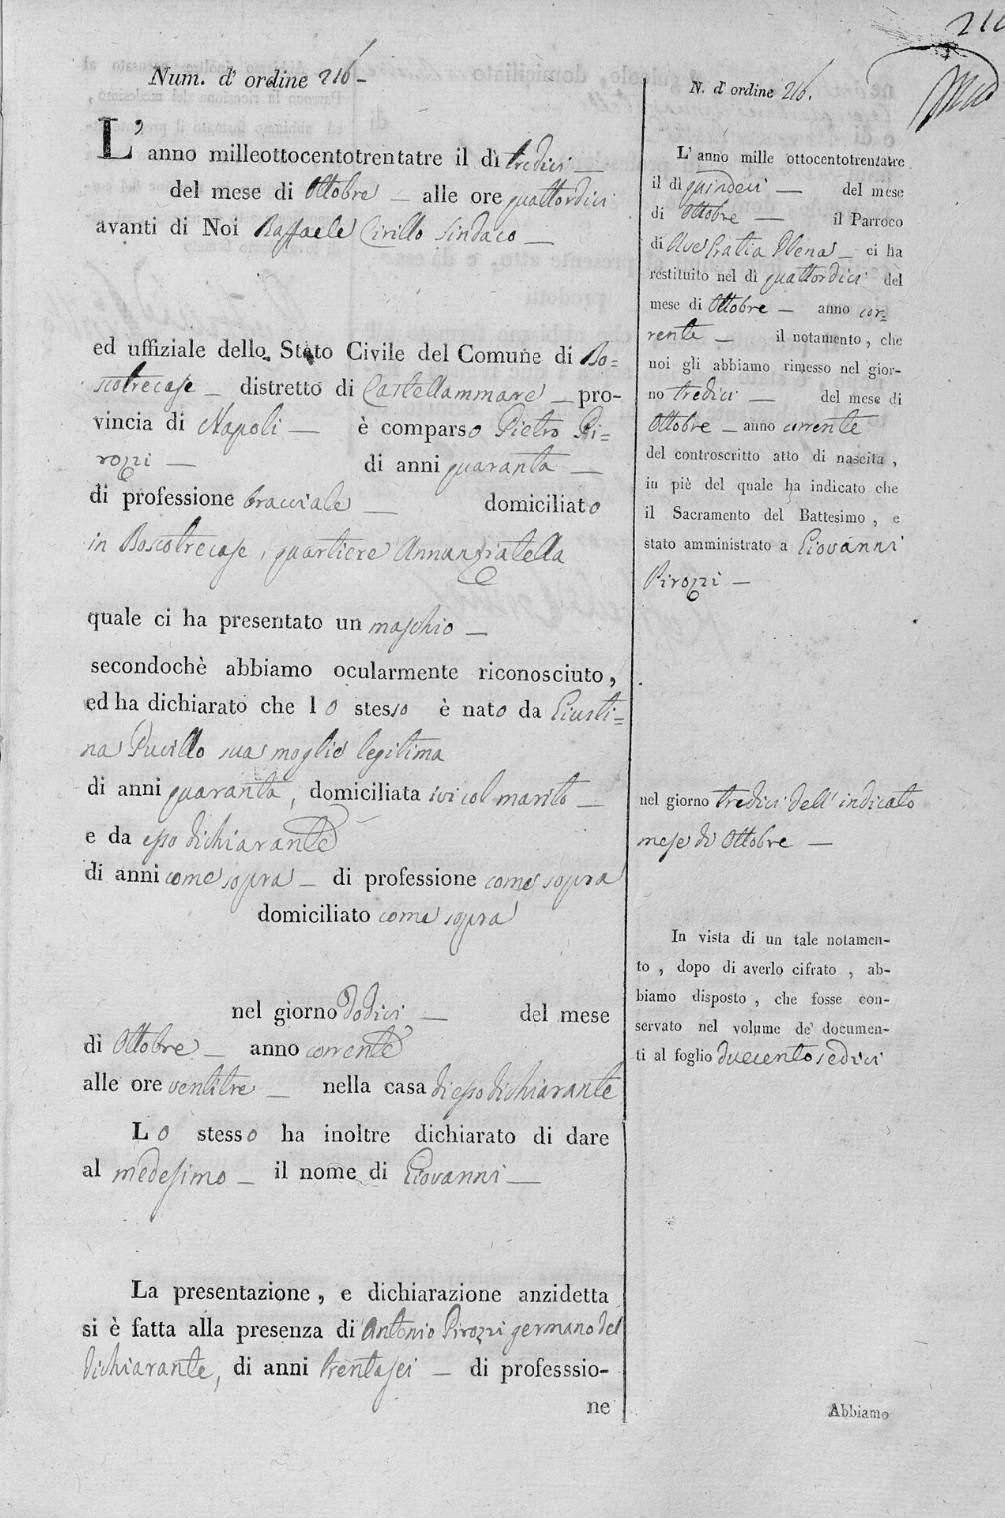 Num. d' ordine 216 -
L' anno milleottocentotrentatre il dì tredici —
del mese di Ottobre — alle ore quattordici
avanti di Noi Raffaele Cirillo Sindaco —
ed uffiziale dello Stato Civile del Comune di Bo=
scotrecase — distretto di Castellammare — pro-
vincia di Napoli — è comparso Pietro Pi=
rozzi — di anni quaranta —
di professione bracciale — domiciliato
in Boscotrecase, quartiere Annunziatella
quale ci ha presentato un maschio —
secondochè abbiamo ocularmente riconosciuto,
ed ha dichiarato che lo stesso è nato da Giusti=
na Pucillo sua moglie legitima
di anni quaranta, domiciliata ivi col marito —
e da esso dichiarante
di anni come sopra — di professione come sopra
domiciliato come sopra
nel giorno dodici — del mese
di Ottobre — anno corrente
alle ore ventitre — nella casa di esso dichiarante
Lo stesso ha inoltre dichiarato di dare
al medesimo — il nome di Giovanni —
La presentazione, e dichiarazione anzidetta
si è fatta alla presenza di Antonio Pirozzi germano del
dichiarante, di anni trentasei — di professsio-
ne
N. d' ordine 216.
L' anno mille ottocentotrentatre
il di quindici — del mese
di Ottobre — il Parroco
di Ave Gratia Plena — ci ha
restituito nel dì quattordici del
mese di Ottobre — anno cor-
rente — il notamento, che
noi gli abbiamo rimesso nel gior-
no tredici — del mese di
Ottobre — anno corrente
del controscritto atto di nascita,
in piè del quale ha indicato che
il Sacramento del Battesimo, e
stato amministrato a Giovanni
Pirozzi —
nel giorno tredici dell' indicato
mese di Ottobre —
In vista di un tale notamen-
to, dopo di averlo cifrato, ab-
biamo disposto, che fosse con-
servato nel volume de' documen-
ti al foglio duecento sedici
Abbiamo